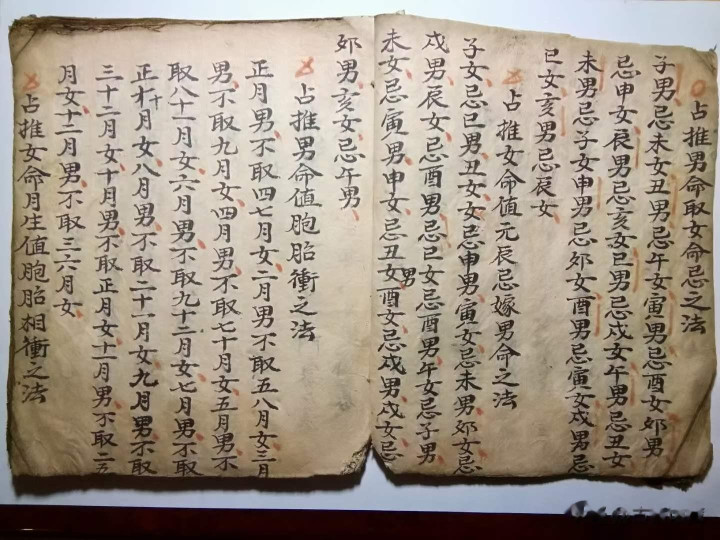 占推男命取女命忌之法
子男忌未女丑男忌午女寅男忌酉女夘男
忌申女辰男忌亥女巳男忌戍女午男忌丑女
未男忌子女申男忌夘女酉男忌寅女戍男忌
巳女亥男忌辰女
占推女命值元辰忌嫁男命之法
子女忌巳男丑女女忌申男寅女忌未男夘女忌
戍男辰女忌酉男忌巳女忌酉男午女忌子男
未女忌寅男申女忌丑女男酉女忌戍男戍女忌
夘男亥女忌午男
占推男命值胞胎衝之法
正月男不取四七月女二月男不取五八月女三月
男不取九月女四月男不取七十月女五月男不
取八十一月女六月男不取九十二月女七月男不取
正十月女八月男不取二十一月女九月男不取
三十二月女十月男不取正月女十一月男不取二五
月女十二月男不取三六月女
占推女命月生值胞胎相衝之法